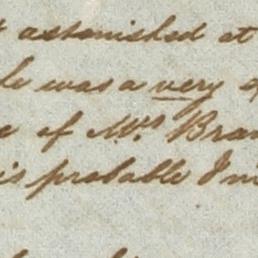 astonished at
was a very
of Mrs Bran
is probable I